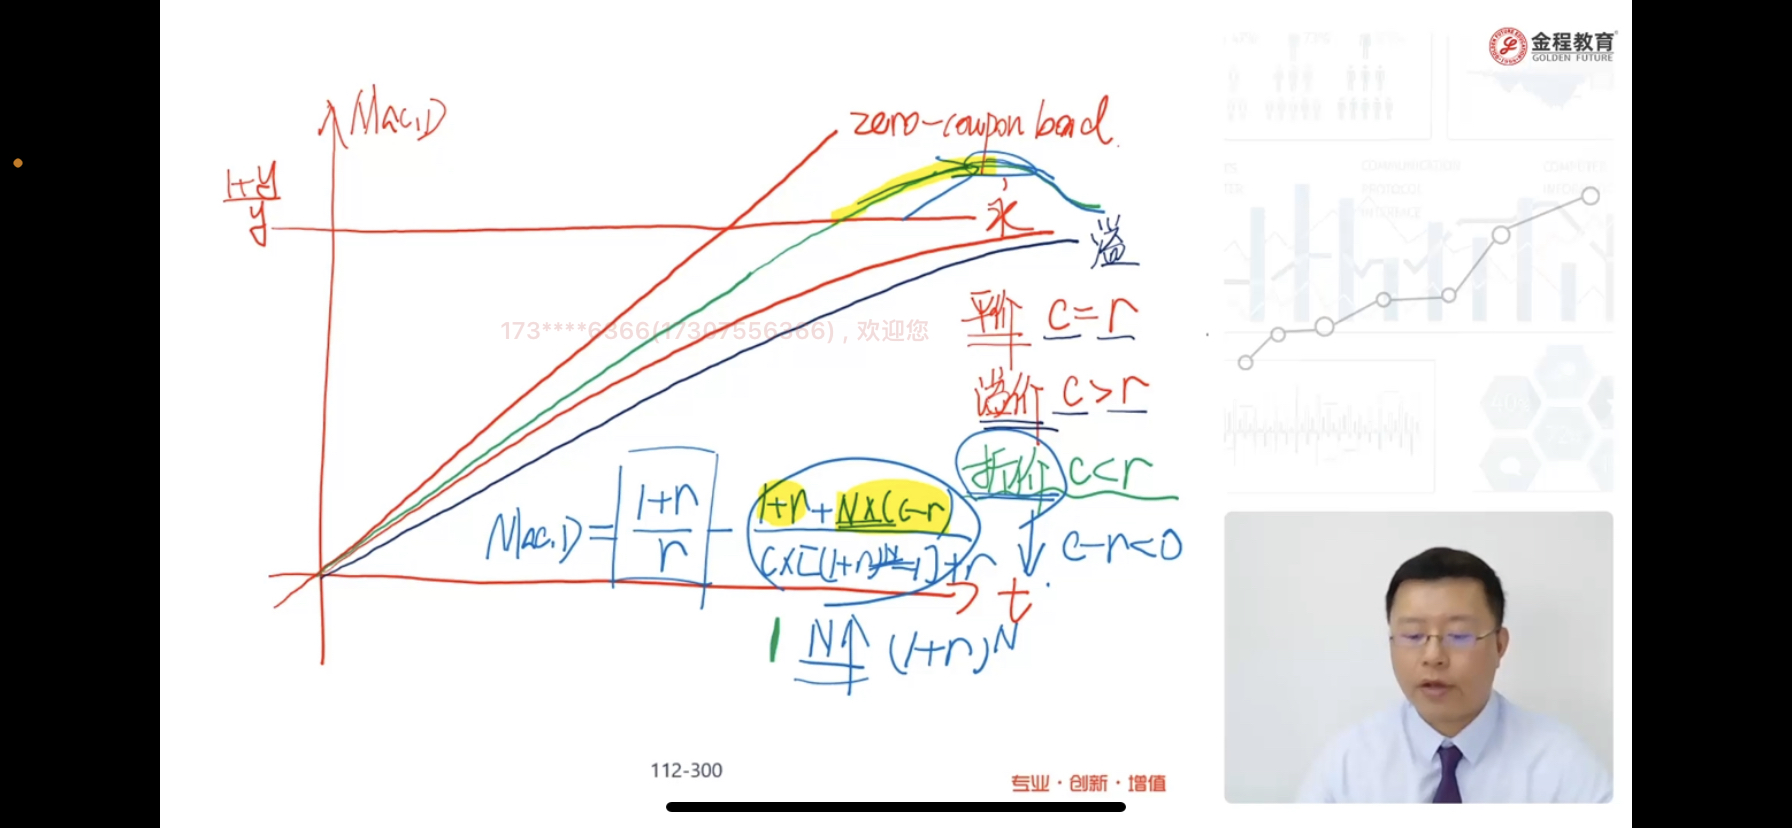 金程教育
GOLDEN FUTURE
Mac.D
zero-coupon bond.
1+y
y
永
溢
173****6366(17307556366) , 欢迎您
平价 c=r
溢价 c>r
折价 c<r
Mac.D = 1+r / r - 1+r+N×(c-r) / c×[(1+r)^N-1]+r
c-r<0
t
N↑ (1+r)^N
112-300
专业·创新·增值